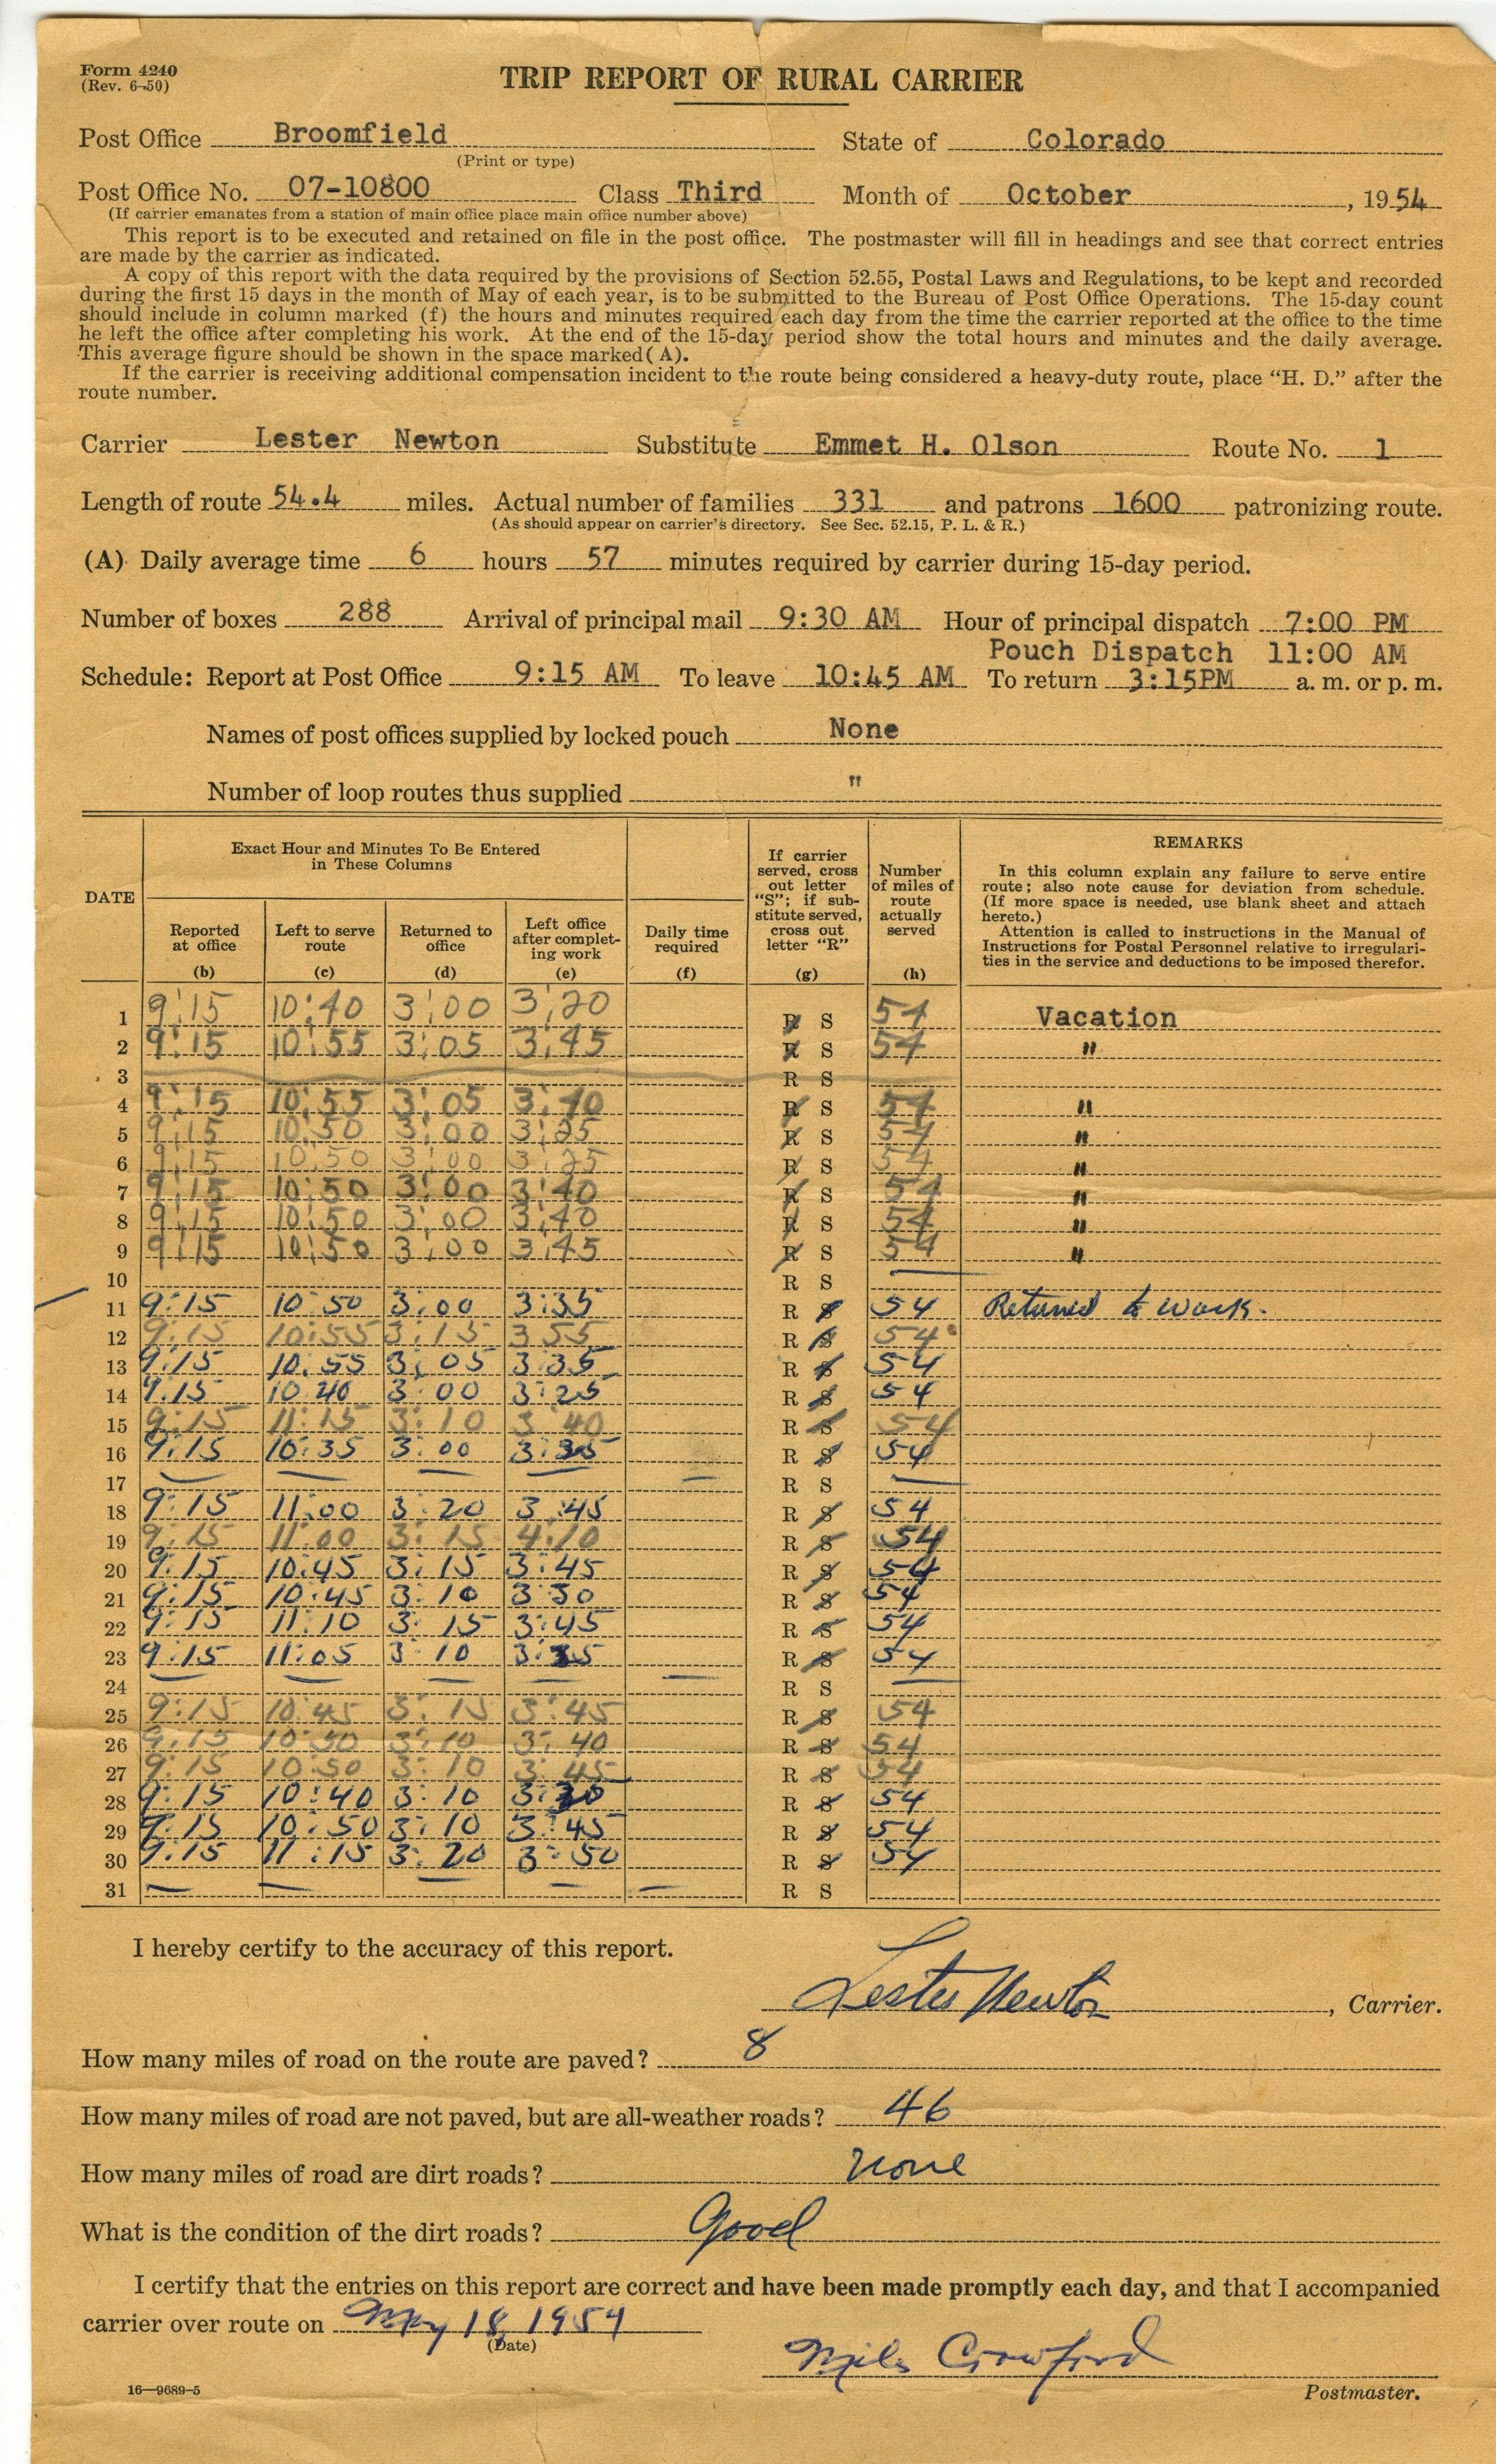 Form 4240
(Rev. 6-50)
TRIP REPORT OF RURAL CARRIER
Post Office Broomfield State of Colorado
(Print or type)
Post Office No. 07-10800 Class Third Month of October, 1954
(If carrier emanates from a station of main office place main office number above)
This report is to be executed and retained on file in the post office. The postmaster will fill in headings and see that correct entries
are made by the carrier as indicated.
A copy of this report with the data required by the provisions of Section 52.55, Postal Laws and Regulations, to be kept and recorded
during the first 15 days in the month of May of each year, is to be submitted to the Bureau of Post Office Operations. The 15-day count
should include in column marked (f) the hours and minutes required each day from the time the carrier reported at the office to the time
he left the office after completing his work. At the end of the 15-day period show the total hours and minutes and the daily average.
This average figure should be shown in the space marked (A).
If the carrier is receiving additional compensation incident to the route being considered a heavy-duty route, place "H. D." after the
route number.
Carrier Lester Newton Substitute Emmet H. Olson Route No. 1
Length of route 54.4 miles. Actual number of families 331 and patrons 1600 patronizing route.
(As should appear on carrier's directory. See Sec. 52.15, P. L. & R.)
(A) Daily average time 6 hours 57 minutes required by carrier during 15-day period.
Number of boxes 288 Arrival of principal mail 9:30 AM Hour of principal dispatch 7:00 PM
Pouch Dispatch 11:00 AM
Schedule: Report at Post Office 9:15 AM To leave 10:45 AM To return 3:15PM a. m. or p. m.
Names of post offices supplied by locked pouch None
Number of loop routes thus supplied "
DATE
Exact Hour and Minutes To Be Entered
in These Columns
Reported
at office
(b)
Left to serve
route
(c)
Returned to
office
(d)
Left office
after complet-
ing work
(e)
Daily time
required
(f)
If carrier
served, cross
out letter
"S"; if sub-
stitute served,
cross out
letter "R"
(g)
Number
of miles of
route
actually
served
(h)
REMARKS
In this column explain any failure to serve entire
route; also note cause for deviation from schedule.
(If more space is needed, use blank sheet and attach
hereto.)
Attention is called to instructions in the Manual of
Instructions for Postal Personnel relative to irregulari-
ties in the service and deductions to be imposed therefor.
1 9:15 10:40 3:00 3:20 R S 54 Vacation
2 9:15 10:55 3:05 3:45 R S 54 "
3 R S
4 9:15 10:55 3:05 3:40 R S 54 "
5 9:15 10:50 3:00 3:25 R S 54 "
6 9:15 10:50 3:00 3:25 R S 54 "
7 9:15 10:50 3:00 3:40 R S 54 "
8 9:15 10:50 3:00 3:40 R S 54 "
9 9:15 10:50 3:00 3:45 R S 54 "
10 R S
11 9:15 10:50 3:00 3:35 R S 54 Retuned to work.
12 9:15 10:55 3:15 3 55 R S 54
13 9:15 10:55 3:05 3:35 R S 54
14 9:15 10 40 3:00 3:25 R S 54
15 9:15 11:15 3:10 3 40 R S 54
16 9:15 10:35 3:00 3:35 R S 54
17 R S
18 9:15 11:00 3:20 3:45 R S 54
19 9:15 11:00 3:15 4:10 R S 54
20 9:15 10:45 3:15 3:45 R S 54
21 9:15 10:45 3:10 3:30 R S 54
22 9:15 11:10 3:15 3:45 R S 54
23 9:15 11:05 3:10 3:35 R S 54
24 R S
25 9:15 10:45 3:15 3:45 R S 54
26 9:15 10:50 3:10 3:40 R S 54
27 9:15 10:50 3:10 3:45 R S 54
28 9:15 10:40 3:10 3:30 R S 54
29 9:15 10:50 3:10 3:45 R S 54
30 9:15 11:15 3:20 3:50 R S 54
31 R S
I hereby certify to the accuracy of this report.
Lester Newton, Carrier.
How many miles of road on the route are paved? 8
How many miles of road are not paved, but are all-weather roads? 46
How many miles of road are dirt roads? none
What is the condition of the dirt roads? Good
I certify that the entries on this report are correct and have been made promptly each day, and that I accompanied
carrier over route on May 18, 1954
(Date)
Miles Crawford
16—9689-5 Postmaster.